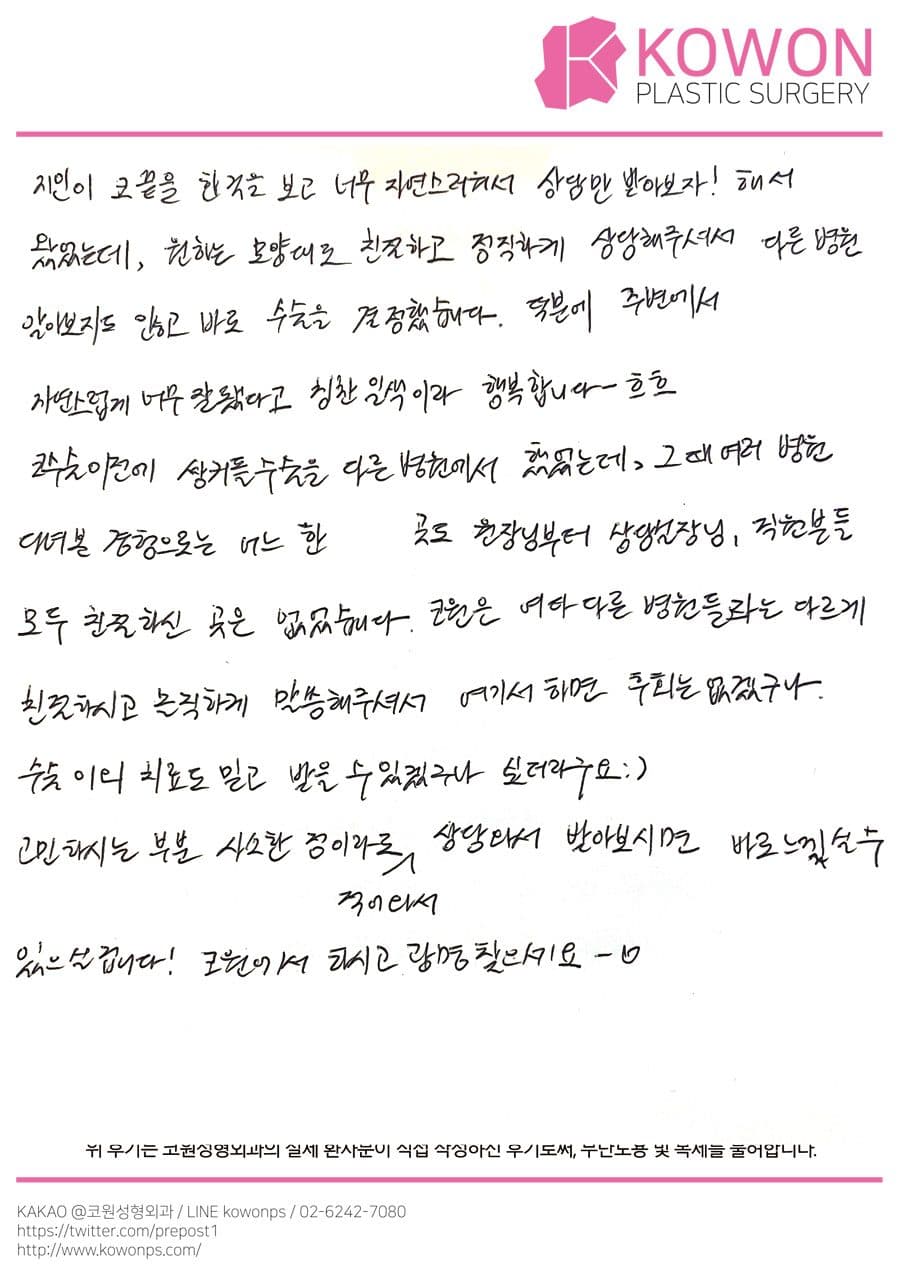 KOWON
PLASTIC SURGERY
지인이 코끝을 한것을 보고 너무 자연스러워서 상담만 받아보자! 해서
왔었는데, 원하는 모양대로 친절하고 정직하게 상담해주셔서 다른 병원
알아보지도 않고 바로 수술을 결정했습니다. 덕분에 주변에서
자연스럽게 너무 잘됐다고 칭찬 일색이라 행복합니다~ 흐흐
코수술이전에 쌍커풀수술을 다른병원에서 했었는데, 그때 여러 병원
다녀본 경험으로는 어느 한 곳도 원장님부터 상담실장님, 직원분들
모두 친절하신 곳은 없었습니다. 코원은 여타 다른 병원들과는 다르게
친절하시고 솔직하게 말씀해주셔서 여기서 하면 후회는 없겠구나.
수술 이외 치료도 믿고 받을 수 있겠구나 싶더라구요:)
고민하시는 부분 사소한 점이라도 적어와서 상담와서 받아보시면 바로느낄실수
있으실 겁니다! 코원에서 하시고 광명찾으세요~
위 후기는 코원성형외과의 실제 환자분이 직접 작성하신 후기로써, 무단도용 및 복제를 불허합니다.
KAKAO @코원성형외과 / LINE kowonps / 02-6242-7080
https://twitter.com/prepost1
http://www.kowonps.com/